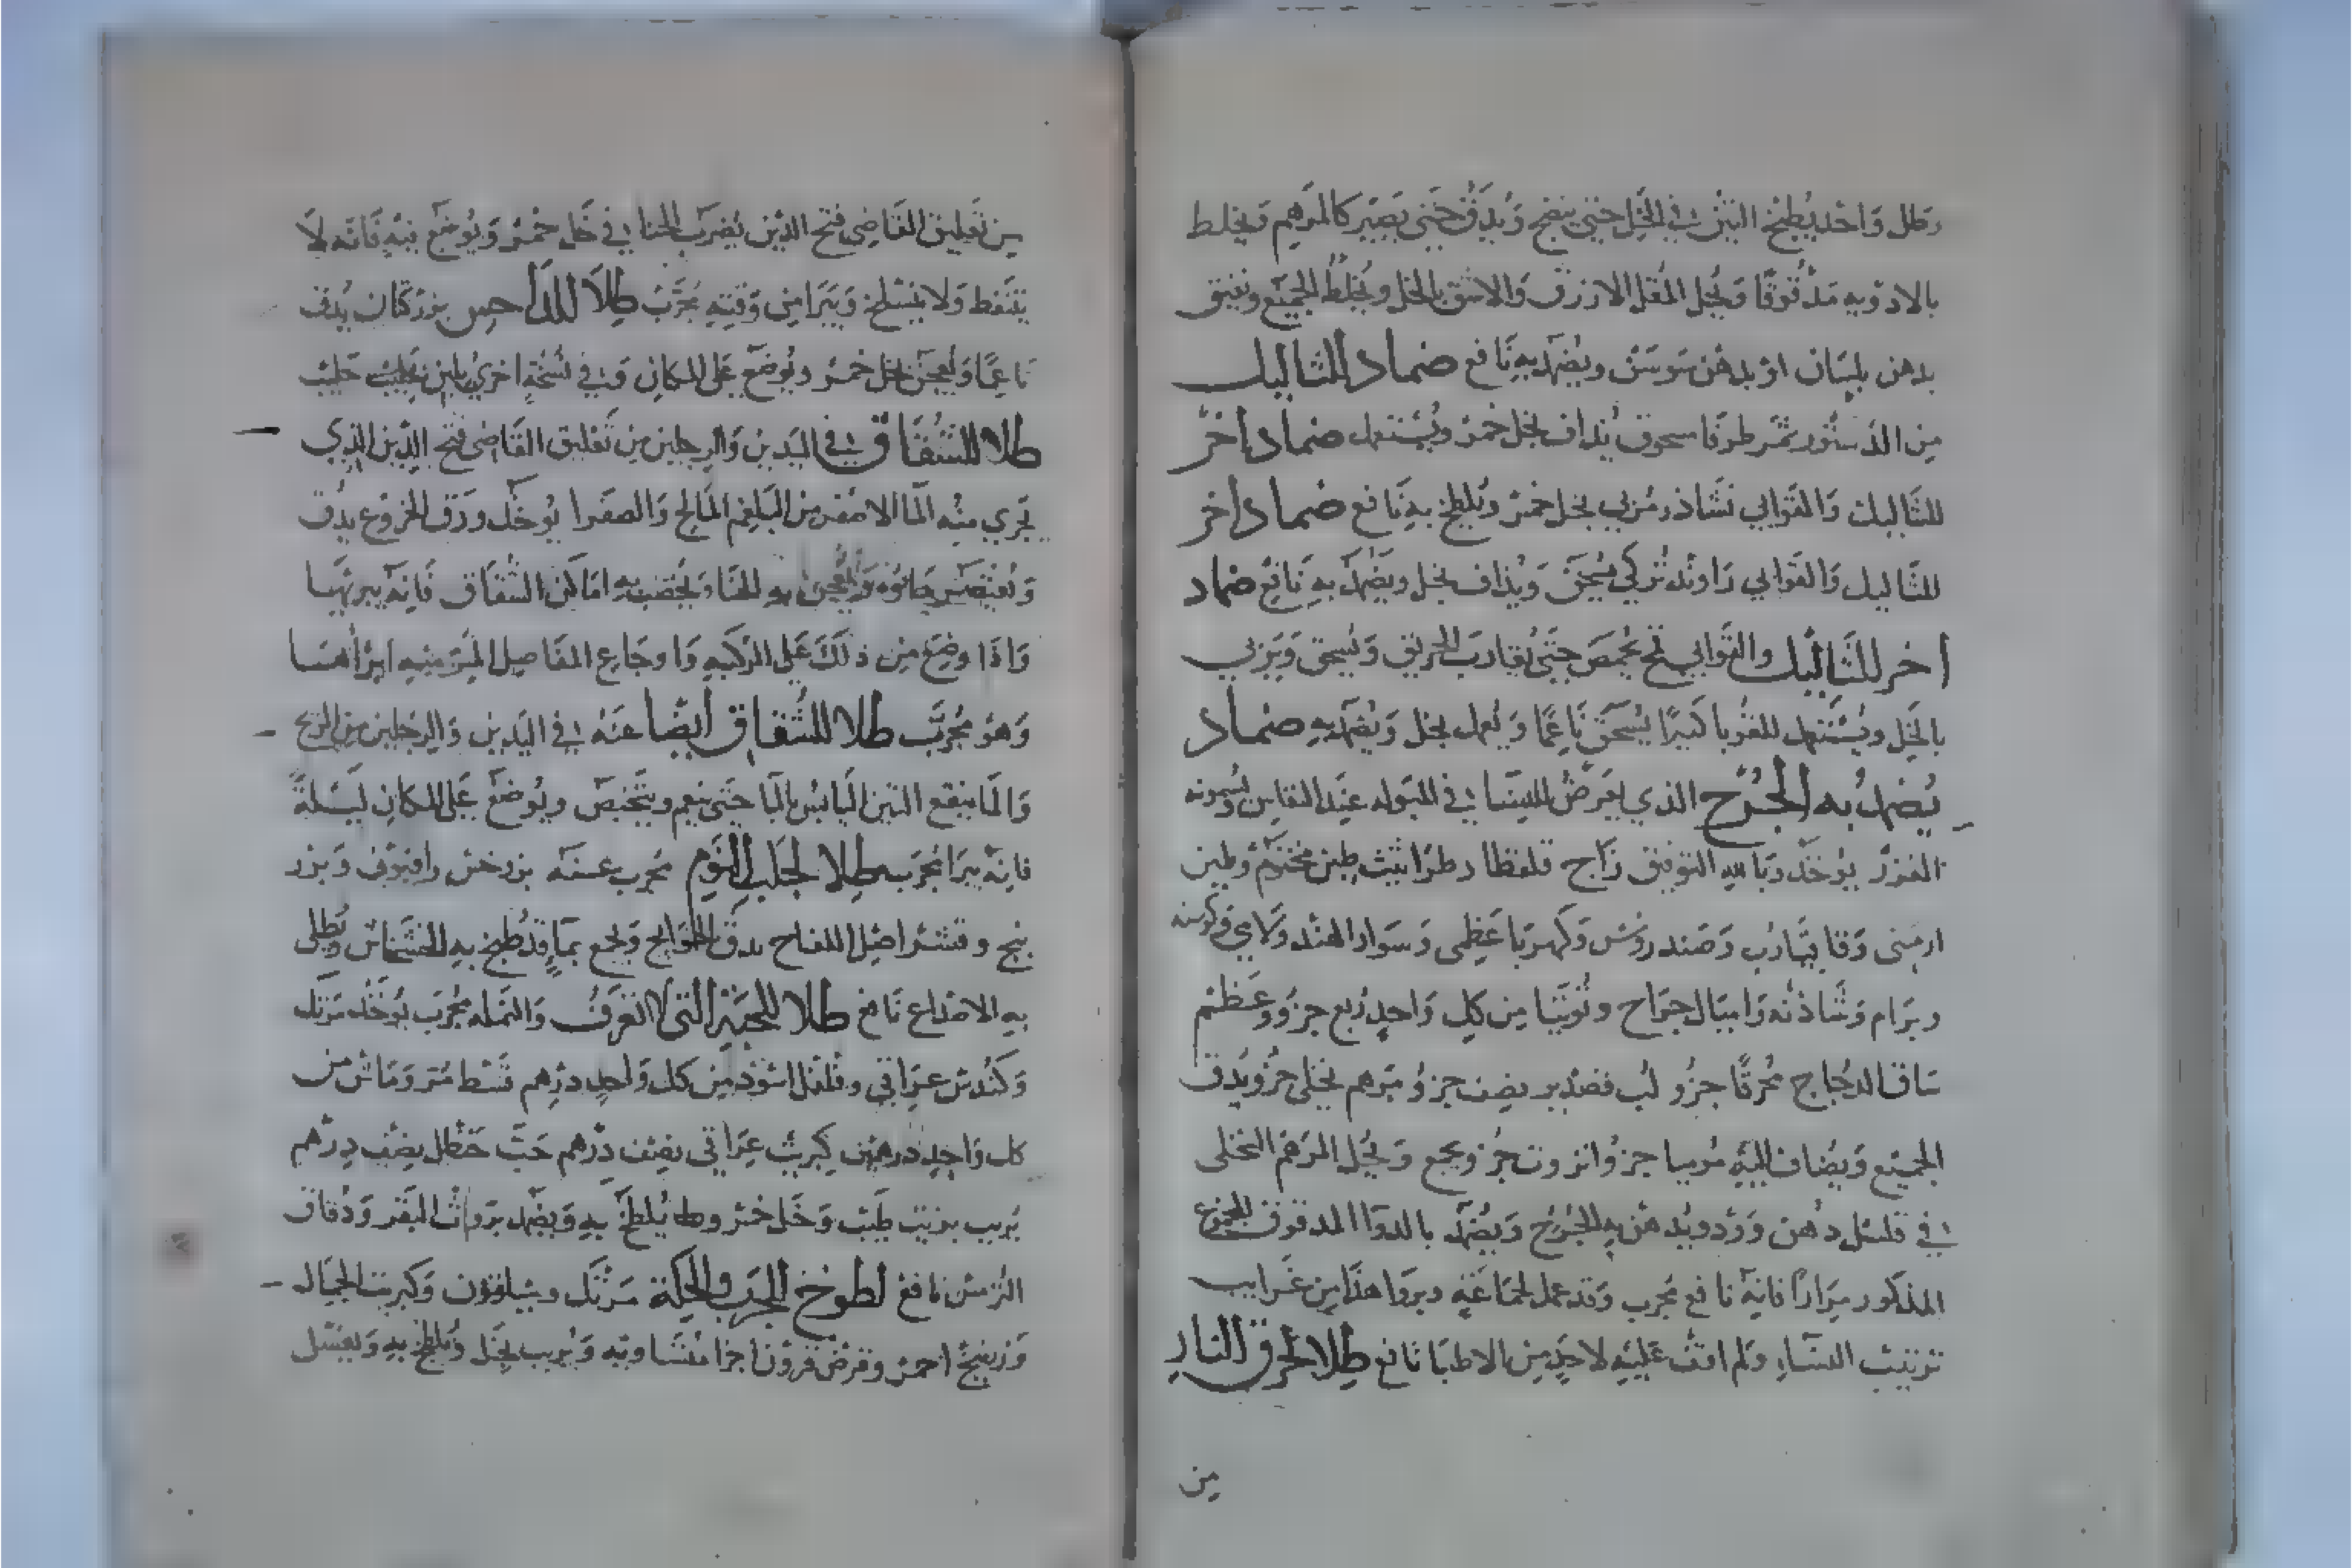 رطل واحد يطبخ التين في الخل حتى ينضج ويدق حتى يصير كالمرهم ويخلط
بالادويه مدقوقا ويحل المقل الازرق والاشق بالخل ويخلط الجميع
بدهن بلسان او بدهن سوسن ويضمد به نافع ضماد للثاليل
من الدستور ثمر طرفا مسحوق يذاف بخل خمر ويستعمل ضماد اخر
للثاليل والقوابي نشاذر مربي بخل خمر ويلطخ به نافع ضماد اخر
للثاليل والقوابي راوند تركي يسحق ويذاف بخل ويضمد به نافع ضماد
اخر للثاليل والقوابي يحمص حتى يقارب الحريق ويسحق ويربي
بالخل ويستعمل للقوبا يسحق ناعما ويعمل بخل ويضمد به ضماد
يضمد به الجرح الذي يعرض للنسا في عند النفاس ويسمونه
يوخذ وبالله التوفيق زاج طين مختوم وطين
ارمني وكهربا
وشاذنه وتوتيا من كل واحد ربع جزو وعظم
ساق الدجاج محرقا جزو نصف جزو مرهم نخلي جزو يدق
الجميع ويضاف اليه موميا جزو انزروت جزو ويجمع ويحل المرهم النخلي
في قليل دهن ورد ويدهن به الجرح ويضمد بالدوا المدقوق المجموع
المذكور مرارا فانه نافع مجرب وقد عمل لجماعه وبروا هذا من غرايب
النساء ولم اقف عليه لاحد من الاطبا نافع طلا لحرق النار
من
من تعليق القاضي فتح الدين يضرب الحنا في خل خمر ويوضع فيه فانه لا
يتنفط ولا ينسلخ ويبرا من وقته مجرب طلا بزر كتان يدق
ناعما ويعجن بخل خمر ويوضع على المكان وفي نسخة اخري بلبن حليب
طلا للشقاق في اليدين والرجلين من تعليق القاضي فتح الدين الذي
يجري منه الما الاصفر من البلغم المالح والصفرا يوخذ ورق الخروع يدق
ويعتصر ماؤه ويعجن به الحنا ويخضب به اماكن الشقاق فانه يبريها
واذا وضع من ذلك على الركبه واوجاع المفاصل المزمنه ابراها
وهو مجرب طلا للشقاق ايضا عنه في اليدين والرجلين من الريح
والما ينقع التين اليابس بالما حتى ينعم ويوضع على المكان ليلة
فانه يبرا مجرب طلا لجلب النوم مجرب عنه بزر خس وافيون وبزر
بنج وقشر اصل اللفاح يدق الحوايج ويجمع بما قد طبخ به الخشخاش ويطلى
به الاصداغ نافع طلا للحية التي لا تعرف والنمله مجرب يوخذ مرتك
وكندس عراقي وفلفل اسود من كل واحد درهم قسط مر وماش من
كل واحد درهمين كبريت عراقي نصف درهم حب حنظل نصف درهم
يربب بزيت طيب وخل خمر يلطخ به ويضمد بروث البقر ودقاق
الترمس نافع لطوخ الجرب والحكة مرتك وسيلقون وكبريت
وزرنيخ احمر اجزا متساويه ويربب بخل ويلطخ به ويغسل